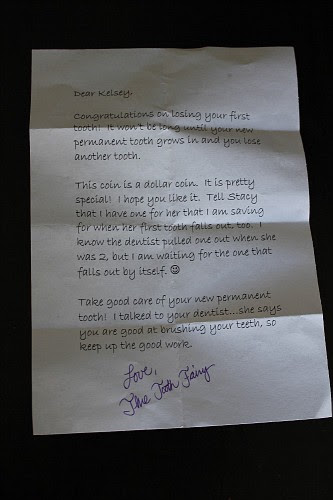 Dear Kelsey,
Congratulations on losing your first
tooth! It won't be long until your new
permanent tooth grows in and you lose
another tooth.
This coin is a dollar coin. It is pretty
special! I hope you like it. Tell Stacy
that I have one for her that I am saving
for when her first tooth falls out, too. I
know the dentist pulled one out when she
was 2, but I am waiting for the one that
falls out by itself. ☺
Take good care of your new permanent
tooth! I talked to your dentist...she says
you are good at brushing your teeth, so
keep up the good work.
Love,
The Tooth Fairy